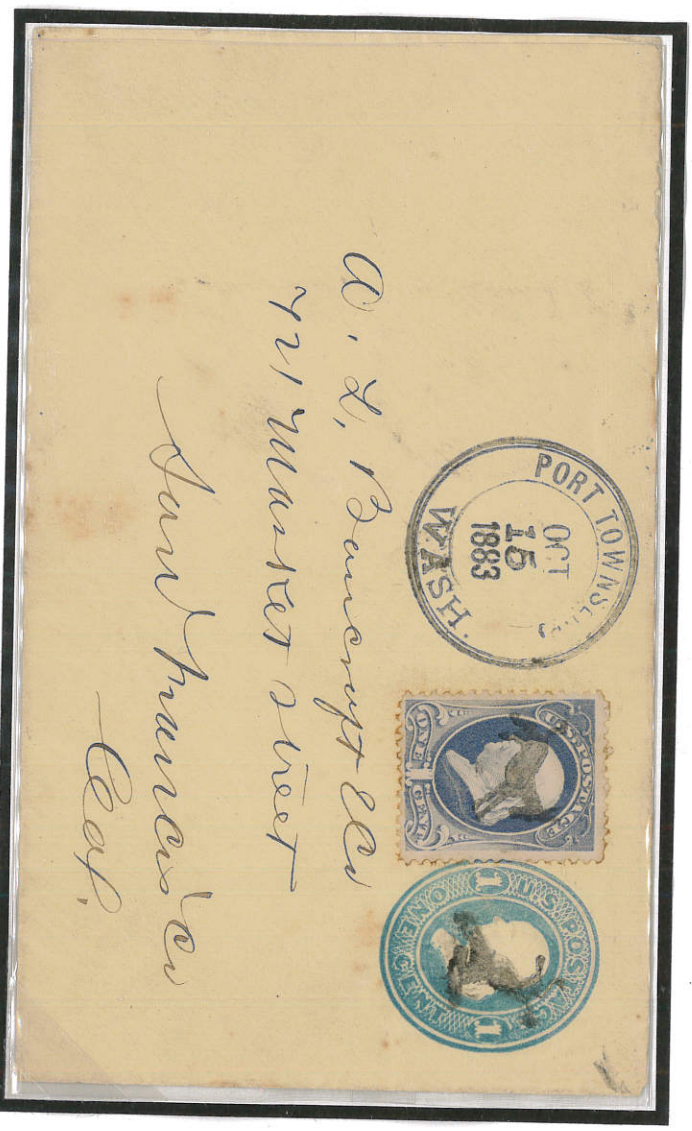 PORT TOWNSEND
OCT
15
1883
WASH.
U.S. POSTAGE
ONE 1 CENT
U.S. POSTAGE
1 1
ONE CENT
A. L. Bancroft & Co
721 Market Street
San Francisco
Cal.